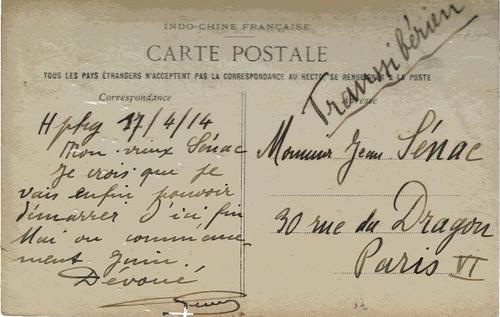 INDO-CHINE FRANÇAISE
CARTE POSTALE
TOUS LES PAYS ÉTRANGERS N'ACCEPTENT PAS LA CORRESPONDANCE AU RECTO, SE RENSEIGNER A LA POSTE
Transsibérien
Correspondance
Adresse
Hphg 17/4/14
Mon vieux Sénac
Je crois que je
vais enfin pouvoir
démarrer d'ici, fin
Mai ou commence-
ment Juin.
Dévoué
Monsieur Jean Sénac
30 rue du Dragon
Paris VI